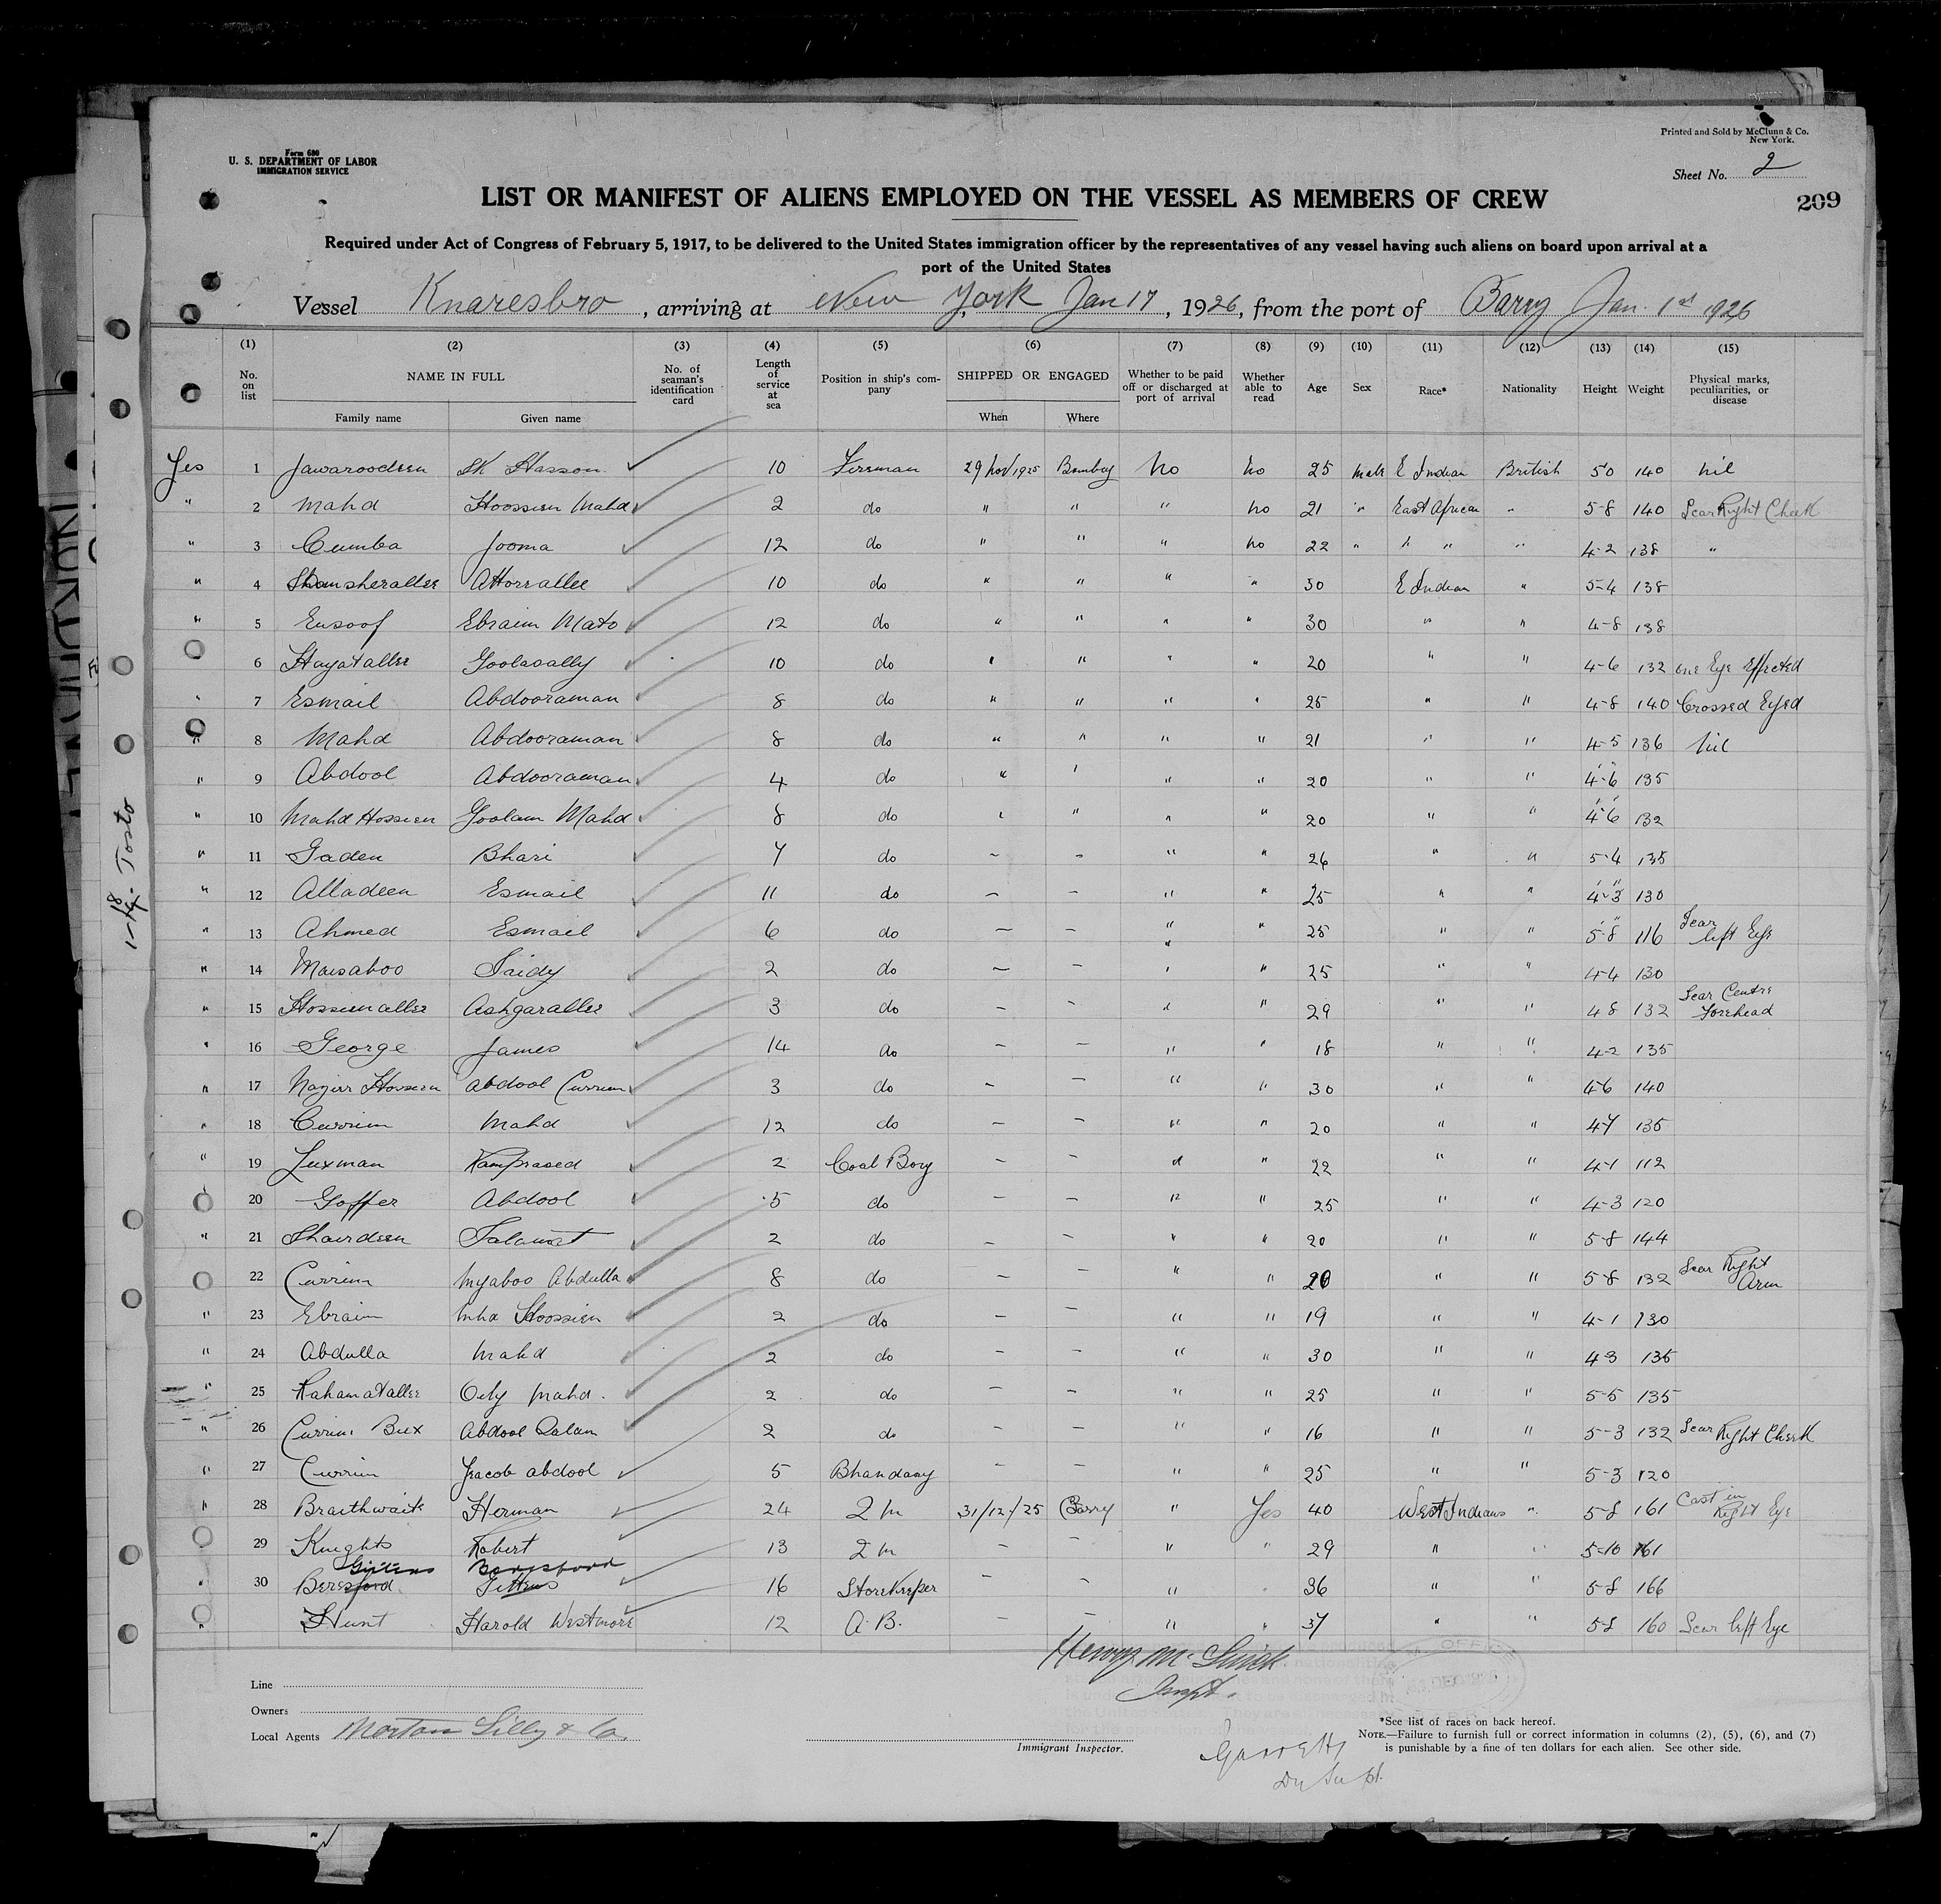 Printed and Sold by McClunn & Co.
New York.
Form 680
U. S. DEPARTMENT OF LABOR
IMMIGRATION SERVICE
Sheet No. 2
209
LIST OR MANIFEST OF ALIENS EMPLOYED ON THE VESSEL AS MEMBERS OF CREW
Required under Act of Congress of February 5, 1917, to be delivered to the United States immigration officer by the representatives of any vessel having such aliens on board upon arrival at a
port of the United States
Vessel Knaresbro, arriving at New York Jan 17, 1926, from the port of Barry Jan. 1st 1926
(1) (2) (3) (4) (5) (6) (7) (8) (9) (10) (11) (12) (13) (14) (15)
No. on list NAME IN FULL No. of seaman's identification card Length of service at sea Position in ship's company SHIPPED OR ENGAGED Whether to be paid off or discharged at port of arrival Whether able to read Age Sex Race* Nationality Height Weight Physical marks, peculiarities, or disease
Family name Given name When Where
Yes 1 Jawaroodeen SK Hasson 10 Fireman 29 Nov 1925 Bombay No No 25 Male E Indian British 5'0 140 Nil
" 2 Mahd Hoossien Mahd 2 do " " " No 21 " East African " 5-8 140 Scar Right Cheek
" 3 Cumba Jooma 12 do " " " No 22 " " " " 4-2 138 "
" 4 Shamsherallee Attorrallee 10 do " " " " 30 E Indian " 5-4 138
" 5 Eusoof Ebraim Mato 12 do " " " " 30 " " 4-8 138
6 Hayatallee Goolasally 10 do " " " " 20 " " 4-6 132 one Eye Effected
" 7 Esmail Abdooraman 8 do " " " " 25 " " 4-8 140 Crossed Eyed
" 8 Mahd Abdooraman 8 do " " " " 21 " " 4-5 136 Nil
" 9 Abdool Abdooraman 4 do " " " " 20 " " 4-6 135
" 10 Mahd Hossien Goolam Mahd 8 do " " " " 20 " " 4-6 132
" 11 Gaden Bhari 7 do – – " " 26 " " 5-4 135
" 12 Alladeen Esmail 11 do – – " " 25 " " 4-3 130
" 13 Ahmed Esmail 6 do – – " " 25 " " 5-8 116 Scar left Eye
" 14 Saidy 2 do – – " " 25 " " 4-4 130
" 15 Hossienallee Ashgarallee 3 do – – " " 29 " " 4 8 132 Scar Centre Forehead
" 16 George James 14 do – – " " 18 " " 4-2 135
" 17 Hossien Abdool Currim 3 do – – " " 30 " " 4-6 140
" 18 Currim Mahd 12 do – – " " 20 " " 4-7 135
" 19 Luxman Ramprased 2 Coal Boy – – " " 22 " " 4-1 112
20 Goffer Abdool 5 do – – " " 25 " " 4-3 120
" 21 Shairdeen Salamat 2 do – – " " 20 " " 5-8 144
22 Currim Myaboo Abdulla 8 do – – " " 20 " " 5-8 132 Scar Right Arm
" 23 Ebraim Hoossien 2 do – – " " 19 " " 4-1 130
" 24 Abdulla Mahd 2 do – – " " 30 " " 4-3 135
" 25 Rahamatallee Mahd. 2 do – – " " 25 " " 5-5 135
" 26 Currim Bux Abdool Salam 2 do – – " " 16 " " 5-3 132 Scar Right Cheek
" 27 Currim Jeacob Abdool 5 Bhandary – – " " 25 " " 5-3 120
" 28 Braithwaite Herman 24 2 M 31/12/25 Barry " Yes 40 West Indians " 5-8 161 Cast in Right Eye
29 Knights Robert 13 2 M – – " " 29 " " 5-10 161
Gittens Beresford
" 30 Beresford Gittens 16 Storekeeper – – " " 36 " " 5-8 166
" Hunt Harold Westmore 12 A.B. – – " " 37 " " 5-8 160 Scar left Eye
Line
Owners
Local Agents Morton Lilly & Co.
Immigrant Inspector.
*See list of races on back hereof.
NOTE.—Failure to furnish full or correct information in columns (2), (5), (6), and (7)
is punishable by a fine of ten dollars for each alien. See other side.